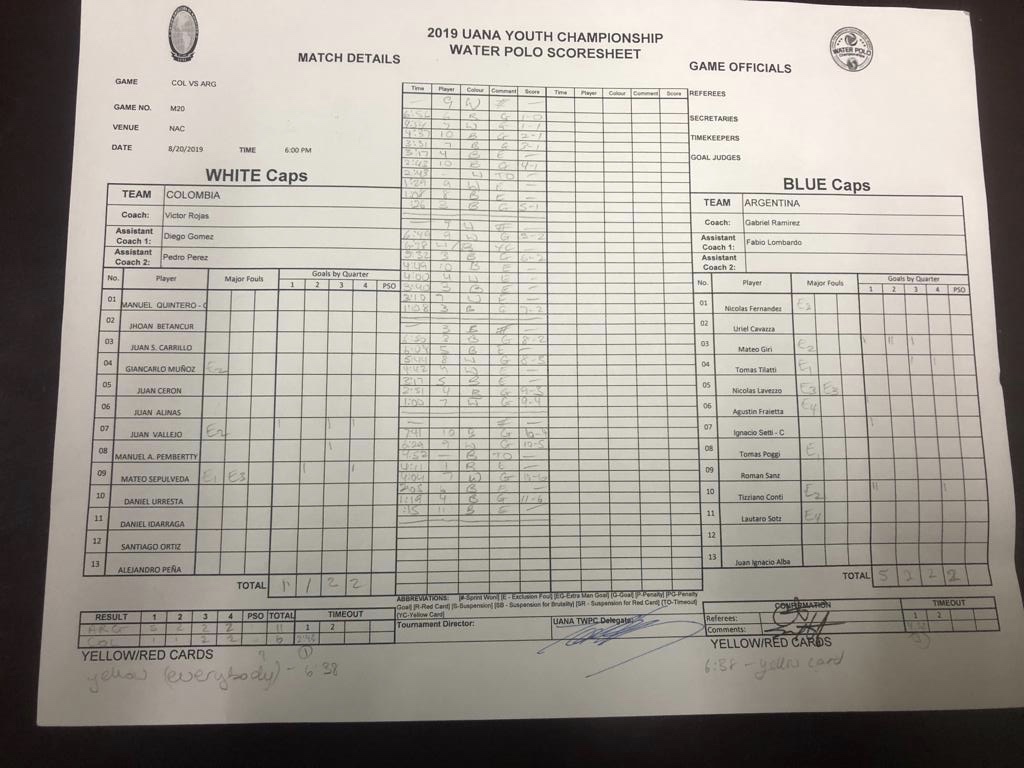 2019 UANA YOUTH CHAMPIONSHIP
WATER POLO SCORESHEET
WATER POLO
MATCH DETAILS
GAME COL VS ARG
GAME NO. M20
VENUE NAC
DATE 8/20/2019 TIME 6:00 PM
GAME OFFICIALS
REFEREES
SECRETARIES
TIMEKEEPERS
GOAL JUDGES
WHITE Caps
TEAM COLOMBIA
Coach: Victor Rojas
Assistant Coach 1: Diego Gomez
Assistant Coach 2: Pedro Perez
No. Player Major Fouls Goals by Quarter
1 2 3 4 PSO
01 MANUEL QUINTERO -
02 JHOAN BETANCUR
03 JUAN S. CARRILLO
04 GIANCARLO MUÑOZ E2
05 JUAN CERON
06 JUAN ALINAS
07 JUAN VALLEJO E2
08 MANUEL A. PEMBERTTY
09 MATEO SEPULVEDA E1 E3
10 DANIEL URRESTA
11 DANIEL IDARRAGA
12 SANTIAGO ORTIZ
13 ALEJANDRO PEÑA
TOTAL 1 1 2 2
Time Player Colour Comment Score Time Player Colour Comment Score
9 W # —
G 1-0
W G 1-1
10 B G 2-1
7 B G
4 B E —
10 B G 4-1
2:43 - W TO —
9 W E —
1:08 8 B E —
3 B G 5-1
9 W #
6:49 9 W G 5-2
6:38 W/B YC —
3 B G 6-2
4:49 10 B E —
4:00 4 W E —
3:40 3 B E —
7 W E —
1:08 3 B G 7-2
3 B # —
B G 8-2
5 B E
W G 8-3
4:42 9 W E —
3:17 5 B E —
2:51 4 B G 9-3
1:00 7 W G 9-4
#
10 B G 10-4
6:29 9 W G 10-5
4:52 — B TO —
4:11 1 B E —
4:04 7 W G 10-6
6 B E —
1:19 4 B G 11-6
:45 11 B E —
BLUE Caps
TEAM ARGENTINA
Coach: Gabriel Ramirez
Assistant Coach 1: Fabio Lombardo
Assistant Coach 2:
No. Player Major Fouls Goals by Quarter
1 2 3 4 PSO
01 Nicolas Fernandez
02 Uriel Cavazza
03 Mateo Giri E2
04 Tomas Tilatti E1
05 Nicolas Lavezzo E3 E3
06 Agustin Fraietta E4
07 Ignacio Setti - C
08 Tomas Poggi E1
09 Roman Sanz
10 Tizziano Conti E2
11 Lautaro Sotz E4
12
13 Juan Ignacio Alba
TOTAL 5 2 2 2
ABBREVIATIONS: [#-Sprint Won] [E - Exclusion Foul] [EG-Extra Man Goal] [G-Goal] [P-Penalty] [PG-Penalty
Goal] [R-Red Card] [S-Suspension] [SB - Suspension for Brutality] [SR - Suspension for Red Card] [TO-Timeout]
[YC-Yellow Card]
Tournament Director:
UANA TWPC Delegate:
RESULT 1 2 3 4 PSO TOTAL TIMEOUT
1 2
ARG 5 2 2 2 11
COL 1 1 2 2 - 6 2:43
YELLOW/RED CARDS
yellow (everybody) - 6:38
CONFIRMATION
Referees:
Comments:
TIMEOUT
1 2
YELLOW/RED CARDS
6:38 - yellow card